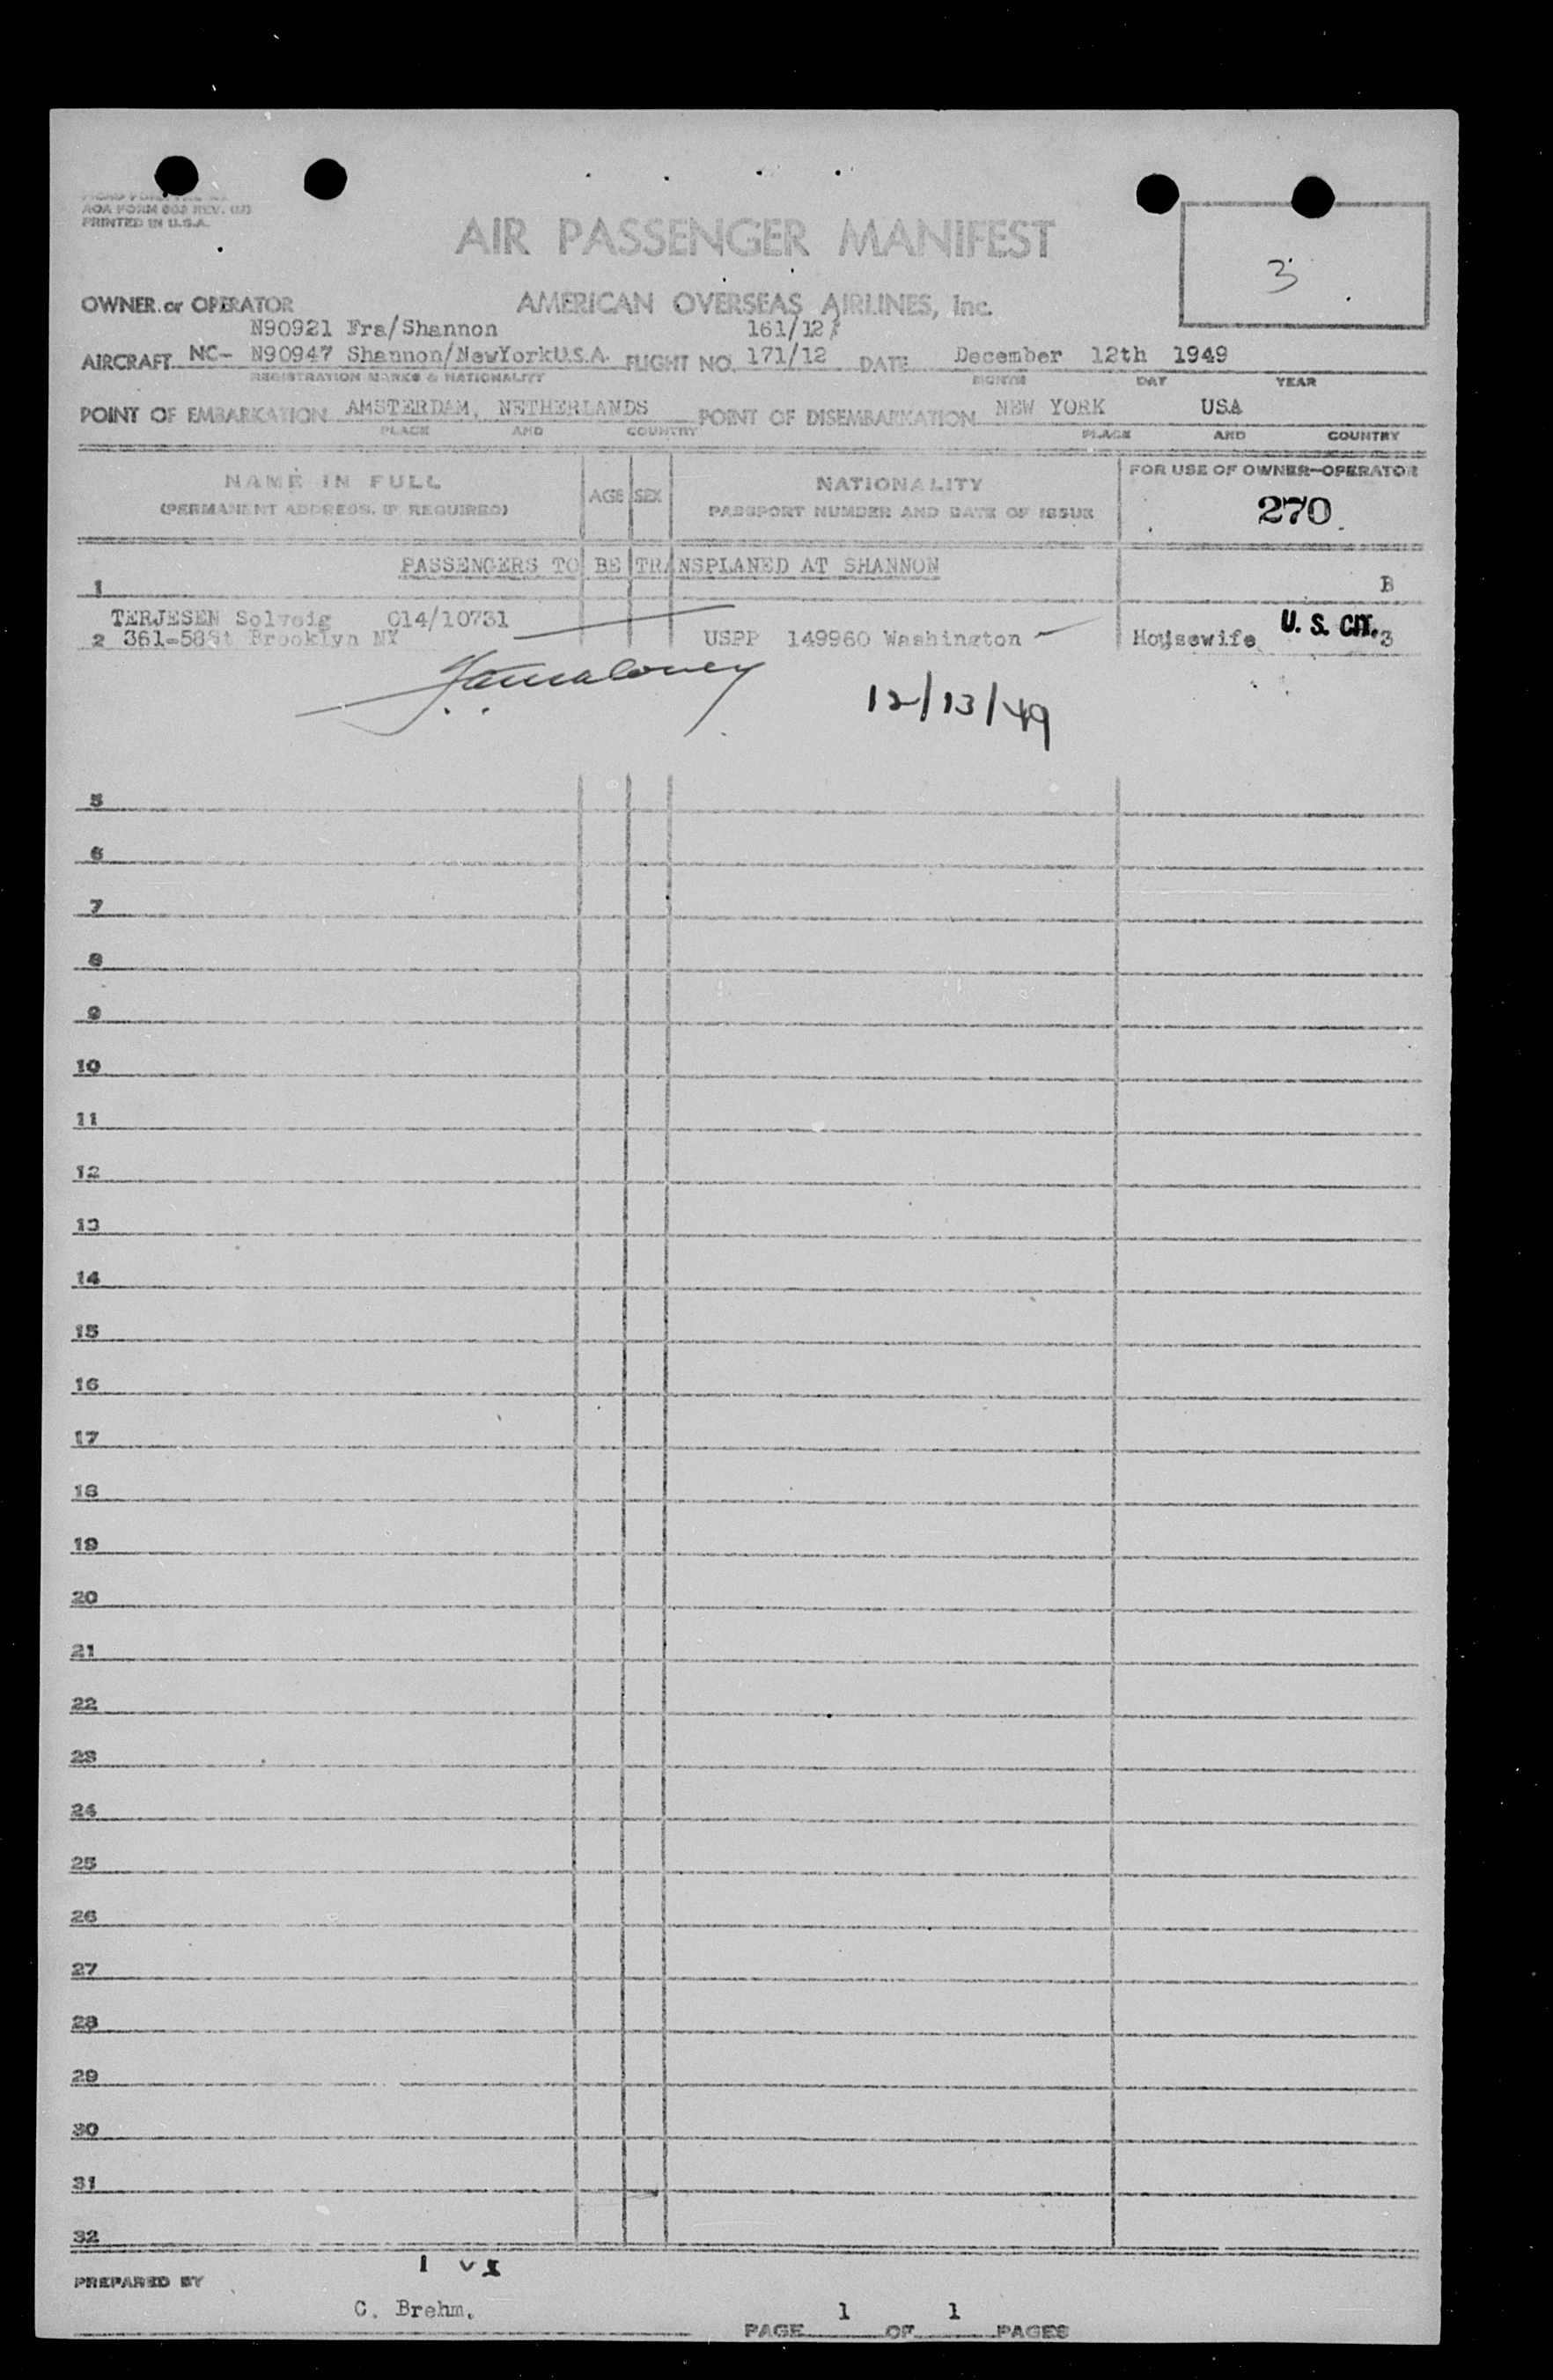 AOA FORM 603 REV.
PRINTED IN U.S.A.
AIR PASSENGER MANIFEST
3
OWNER or OPERATOR AMERICAN OVERSEAS AIRLINES, Inc.
N90921 Fra/Shannon 161/12
AIRCRAFT NC- N90947 Shannon/NewYorkU.S.A. FLIGHT NO. 171/12 DATE December 12th 1949
REGISTRATION MARKS & NATIONALITY MONTH DAY YEAR
POINT OF EMBARKATION AMSTERDAM, NETHERLANDS POINT OF DISEMBARKATION NEW YORK USA
PLACE AND COUNTRY PLACE AND COUNTRY
NAME IN FULL
(PERMANENT ADDRESS, IF REQUIRED)
AGE SEX
NATIONALITY
PASSPORT NUMBER AND DATE OF ISSUE
FOR USE OF OWNER-OPERATOR
270
PASSENGERS TO BE TRANSPLANED AT SHANNON
1 B
TERJESEN Solveig 014/10731 U. S. CIT.
2 361-58St Brooklyn NY USPP 149960 Washington Housewife 3
12/13/49
5
6
7
8
9
10
11
12
13
14
15
16
17
18
19
20
21
22
23
24
25
26
27
28
29
30
31
32
PREPARED BY
C. Brehm.
PAGE 1 OF 1 PAGES